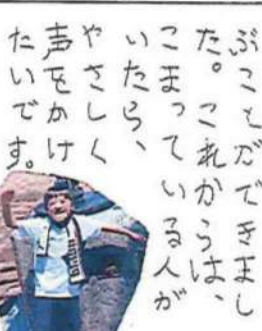 ぶことができまし
た。これからは、
こまっている人が
いたら、
やさしく
声をかけ
たいです。